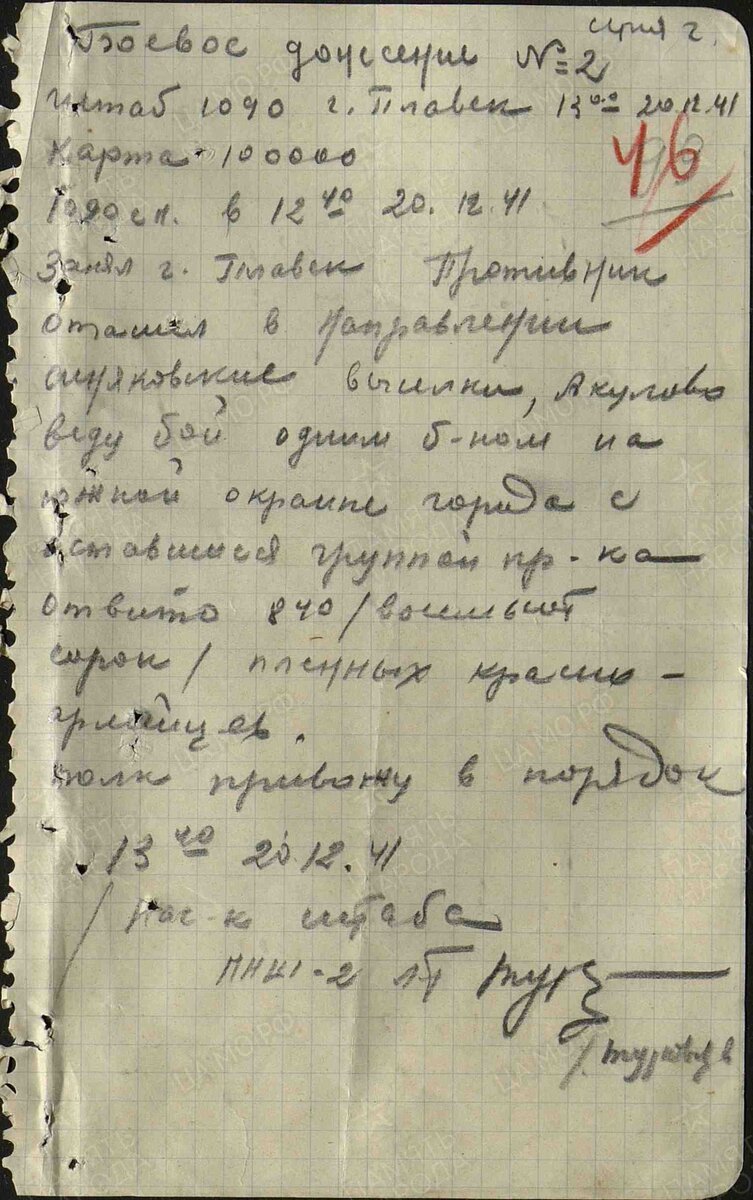 серия г.
Боевое донесение № 2
штаб 1090 г. Плавск 13 00 20.12.41
Карта 100000
46
1090 сп. в 12 40 20. 12. 41
Занял г. Плавск Противник
отошел в направлении
синяковские выселки, Акулово
веду бой одним б-ном на
южной окраине города с
оставшейся группой пр-ка
отбито 840 /восемьсот
сорок/ пленных красно-
армейцев.
полк привожу в порядок
13 40 20.12.41
/ Нач-к штаба
ПНШ-2 лт